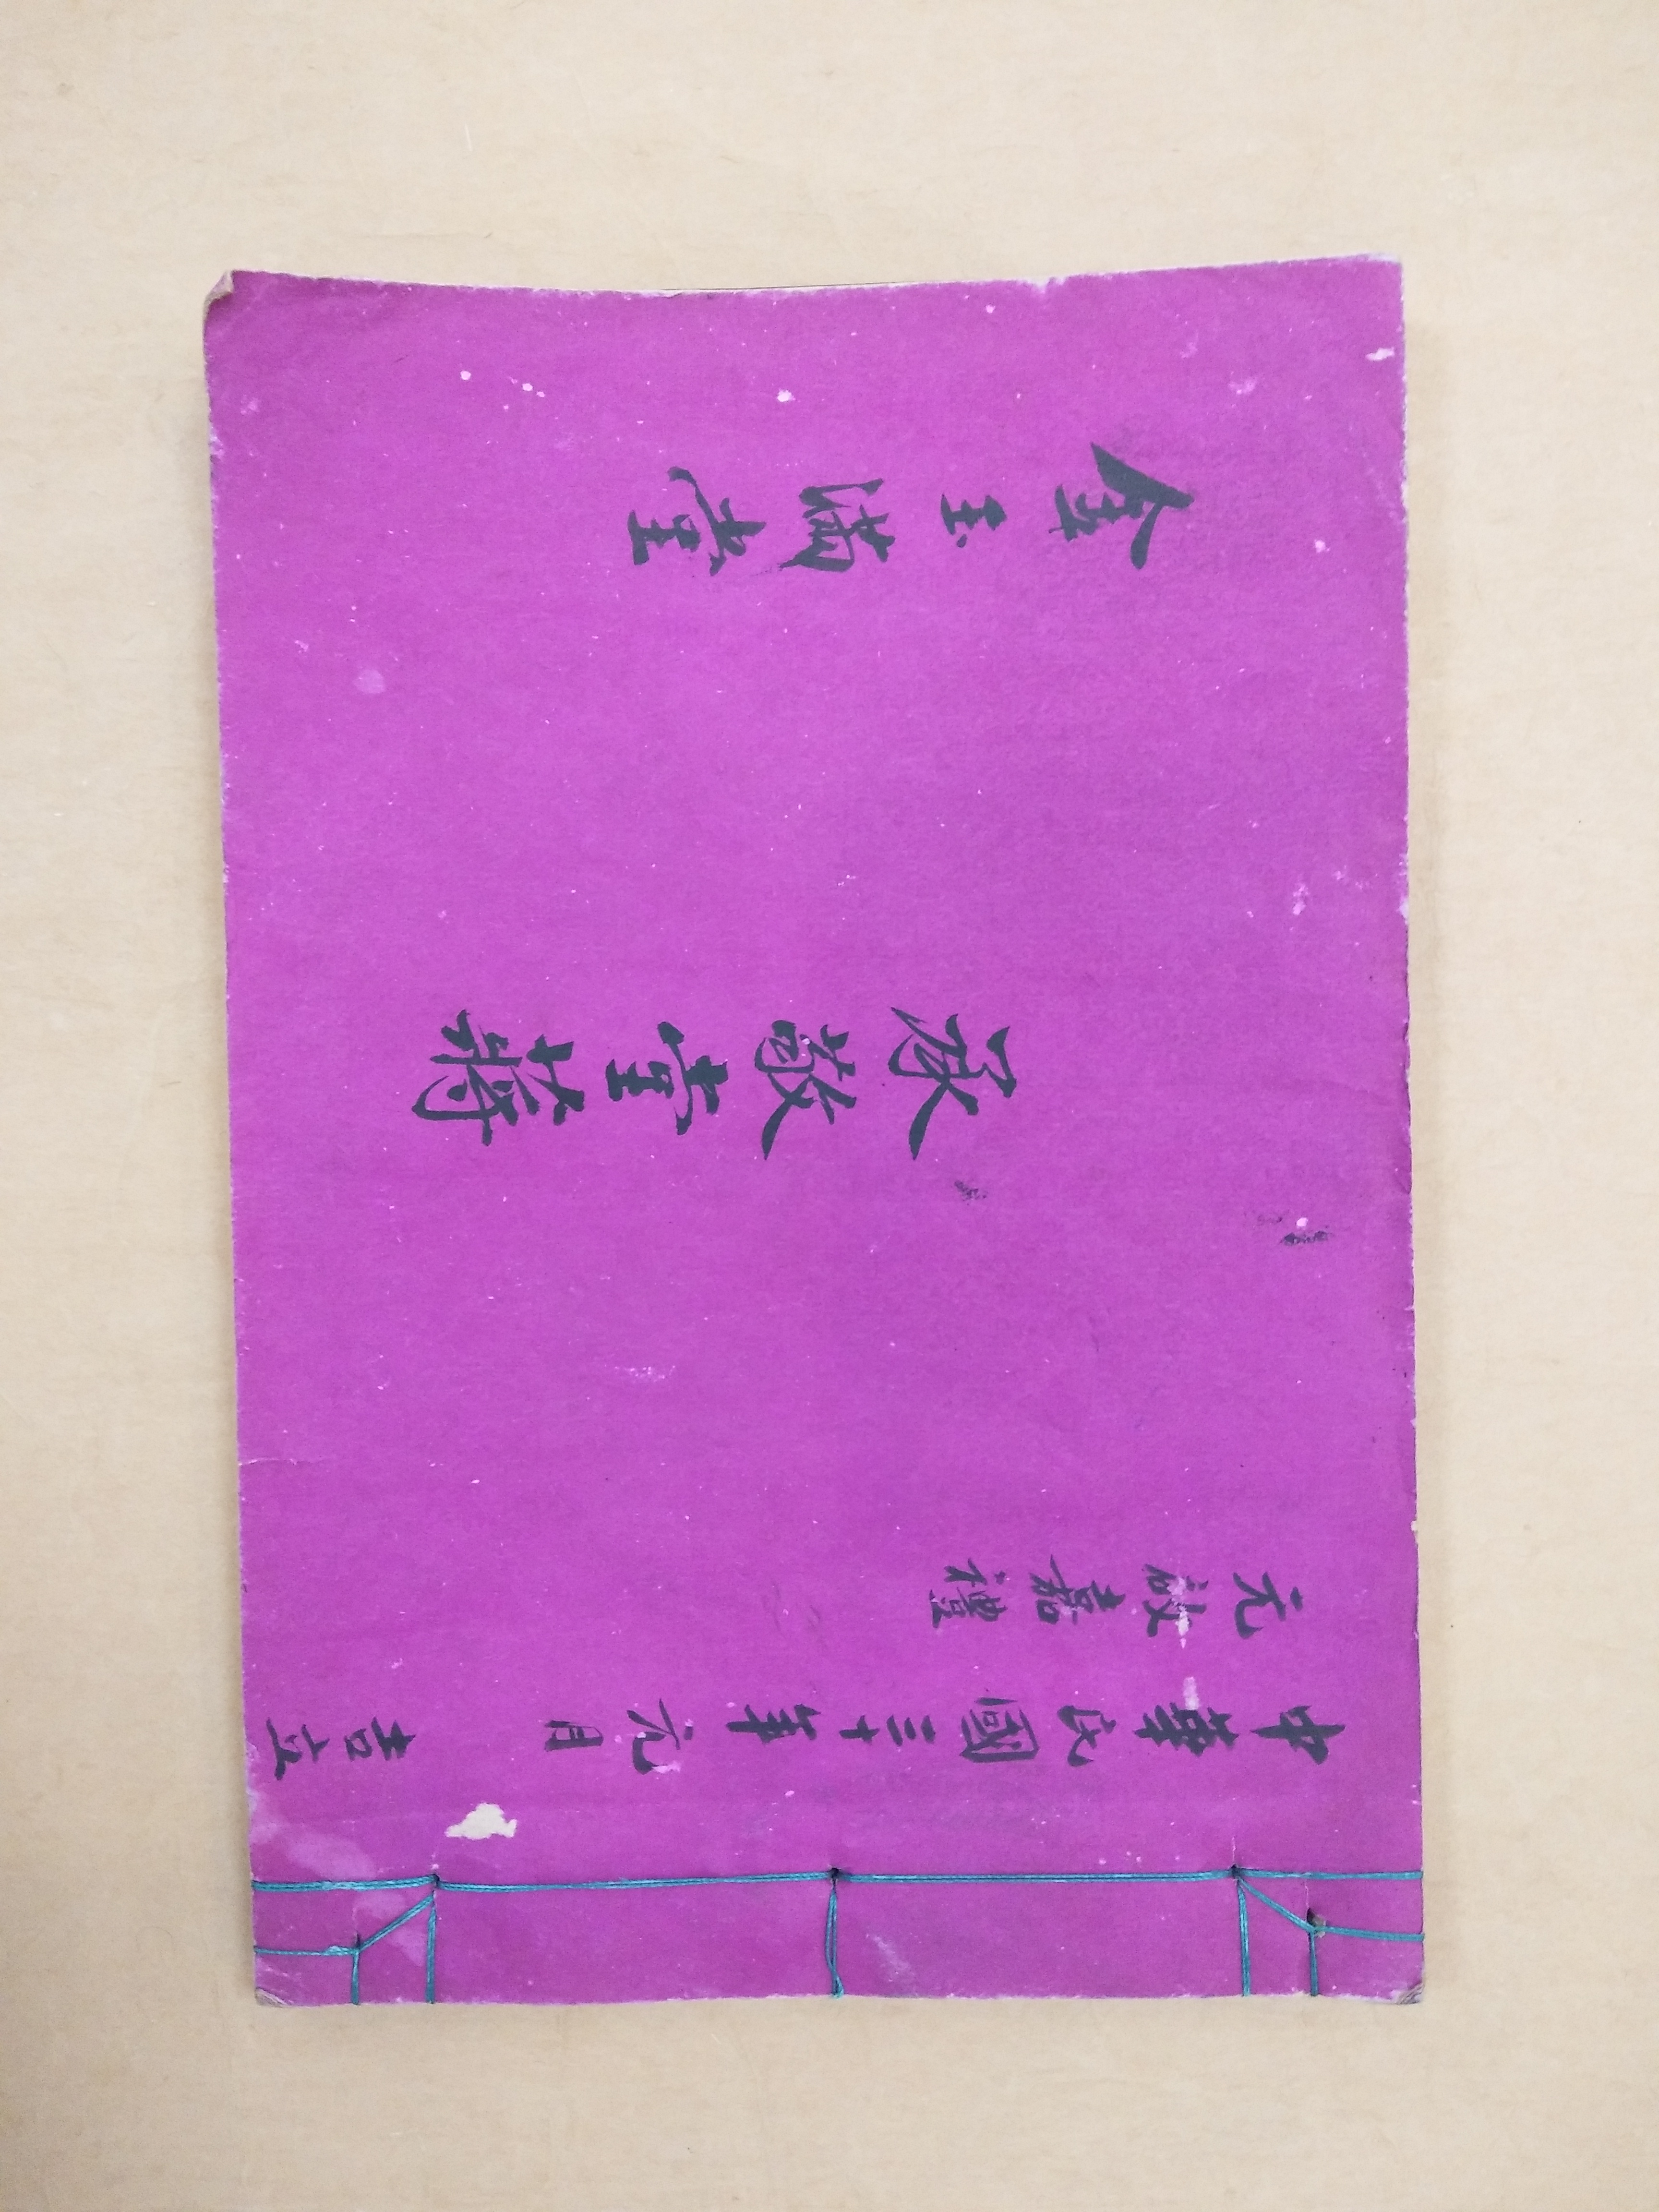 中華民國三十年元月 吉立
元啟嘉禮
承敬堂蔣
金玉滿堂